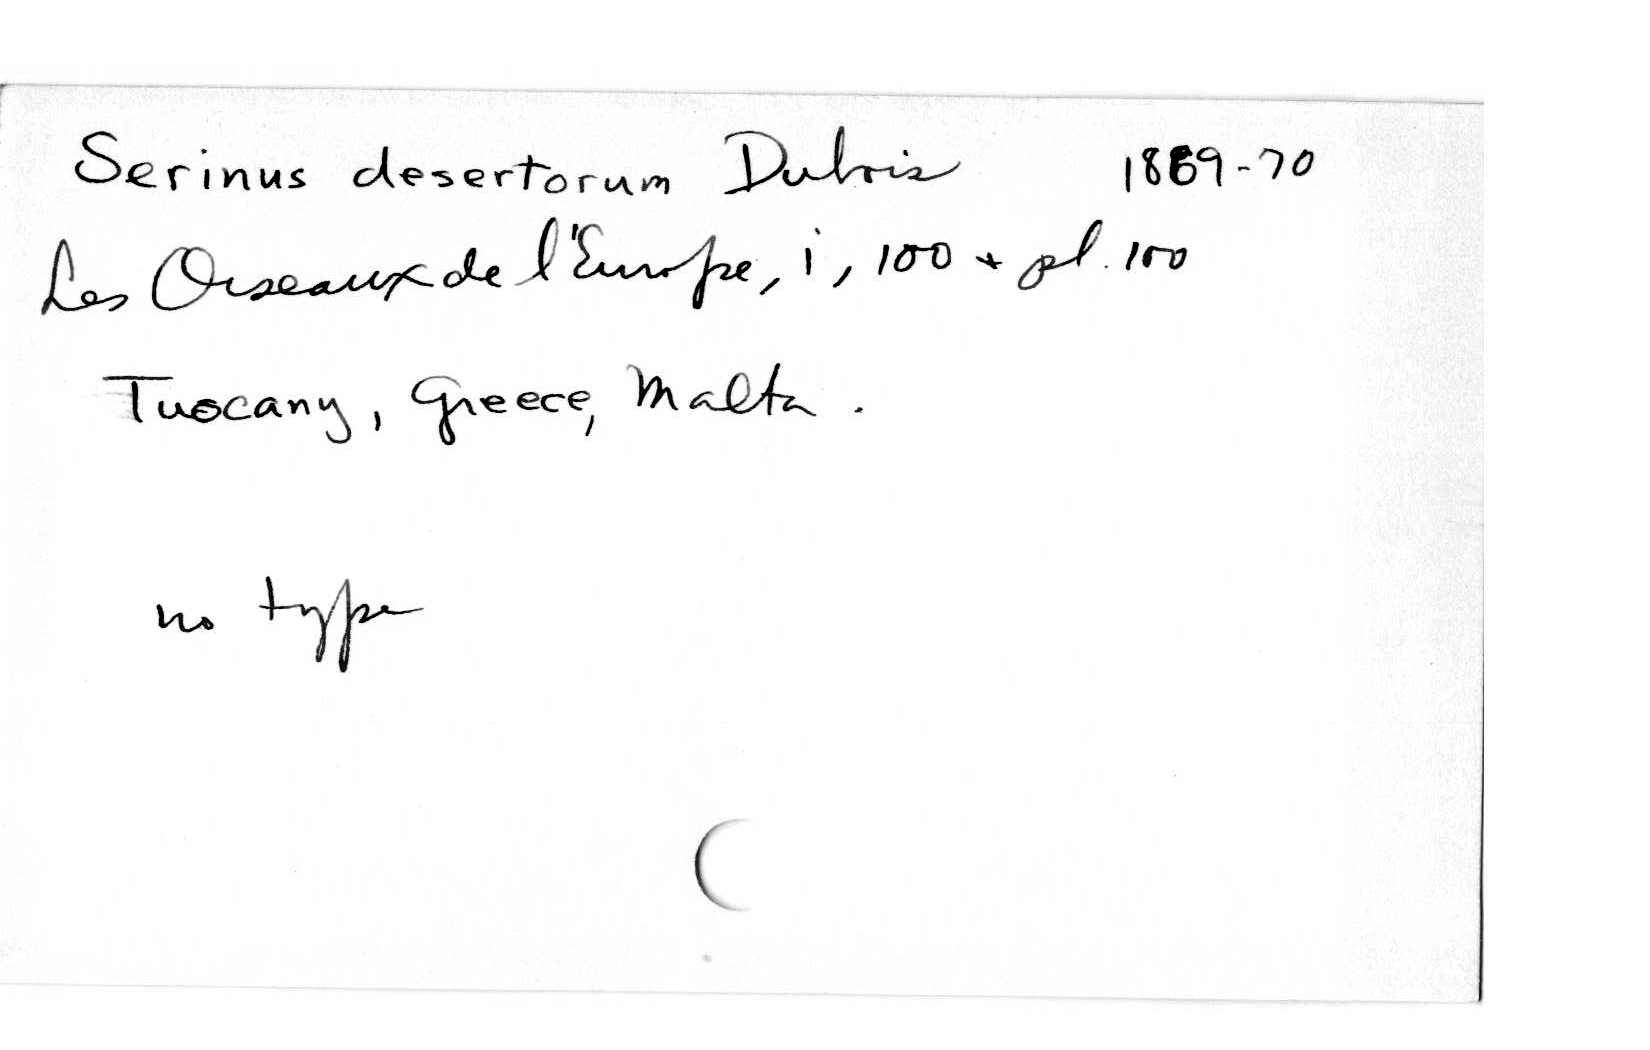 Serinus desertorum Dubois 1869-70
Les Oiseaux de l'Europe, i, 100 + pl. 100
Tuscany, Greece, Malta.
no type